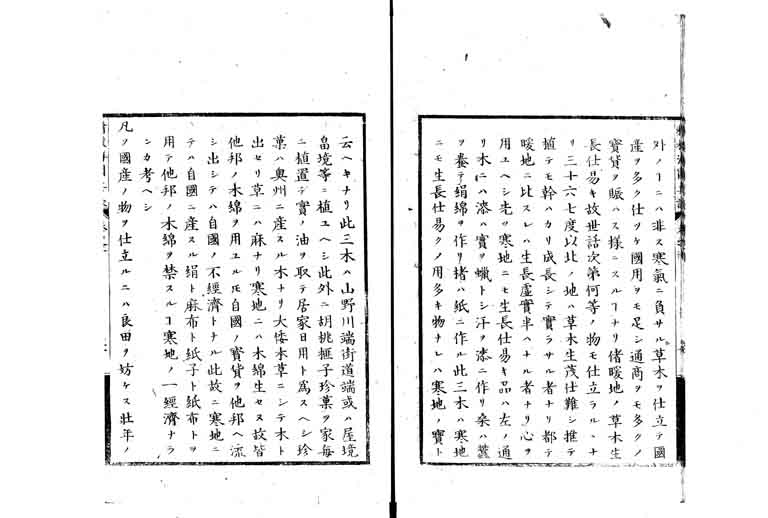 外ノ一ニハ非ス寒氣ニ負サル草木ヲ仕立テ國
産ヲ多ク仕ツケ國用ヲモ足シ通商ヲモ多クノ
寳貨ヲ賑ハス様ニスルヿナリ偖暖地ノ草木生
長仕易キ故世話次第何等ノ物モ仕立ラルヽナ
リ三十六七度以北ノ地ハ草木生茂仕難シ推テ
植テモ幹ハカリ成長シテ實ラサル者ナリ都テ
暖地ニ比スレハ生長虚實半ヘナル者ナリ心ヲ
用ユヘシ先ツ寒地ニモ生長仕易キ品ハ左ノ通
リ木ニハ漆ハ實ヲ蠟トシ汗ヲ漆ニ作リ桑ハ蠶
ヲ養テ絹綿ヲ作リ楮ハ紙ニ作ル此三木ハ寒地
ニモ生長仕易クノ用多キ物ナレハ寒地ノ寳ト
云ヘキナリ此三木ハ山野川端街道端或ハ屋境
畠境等ニ植ユヘシ此外ニ胡桃榧子珍菓ヲ家毎
ニ植置テ實ノ油ヲ取テ居家日用ト爲スヘシ珍
菓ハ奥州ニ産スル木ナリ大倭本草ニシテ木ト
出セリ草ニハ麻ナリ寒地ニハ木綿生セス故皆
他邦ノ木綿ヲ用ユル𪜈自國ノ寳貨ヲ他邦ヘ流
シ出シテハ自國ノ不經濟トナル此故ニ寒地ニ
テハ自國ニ産スル絹ト麻布ト紙子ト紙布トヲ
用テ他邦ノ木綿ヲ禁スルヿ寒地ノ一經濟ナラ
ンカ考ヘシ
凡ソ國産ノ物ヲ仕立ルニハ良田ヲ妨ケス壯年ノ